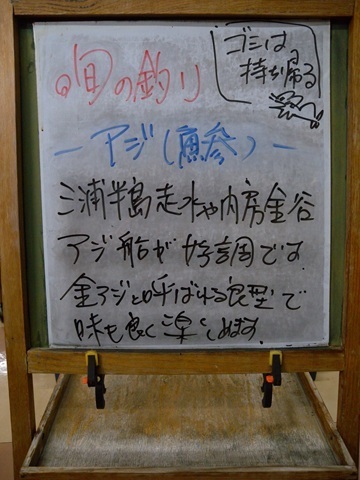 旬の釣り
ゴミは、
持ち帰る
ーアジ(鯵)ー
三浦半島走水や内房金谷
アジ船が好調です
金アジと呼ばれる良型で
味も良く楽しめます